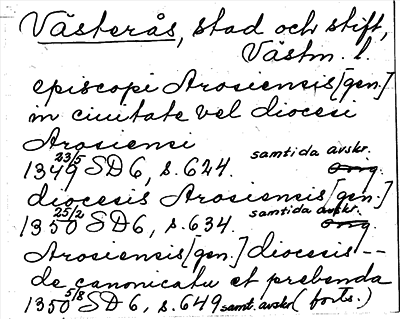 Västerås, stad och stift,
Västm. l.
episcopi Arosiensis [gen.]
in ciuitate vel diocesi
Arosiensi
1349 23/5 SD 6, s. 624. samtida avskr. Orig.
diocesis Arosiensis [gen.]
1350 25/2 SD 6, s. 634. samtida avskr. Orig.
Arosiensis [gen.] diocesis --
de canonicatu et prebenda
1350 5/8 SD 6, s. 649 samt. avskr. (forts.)